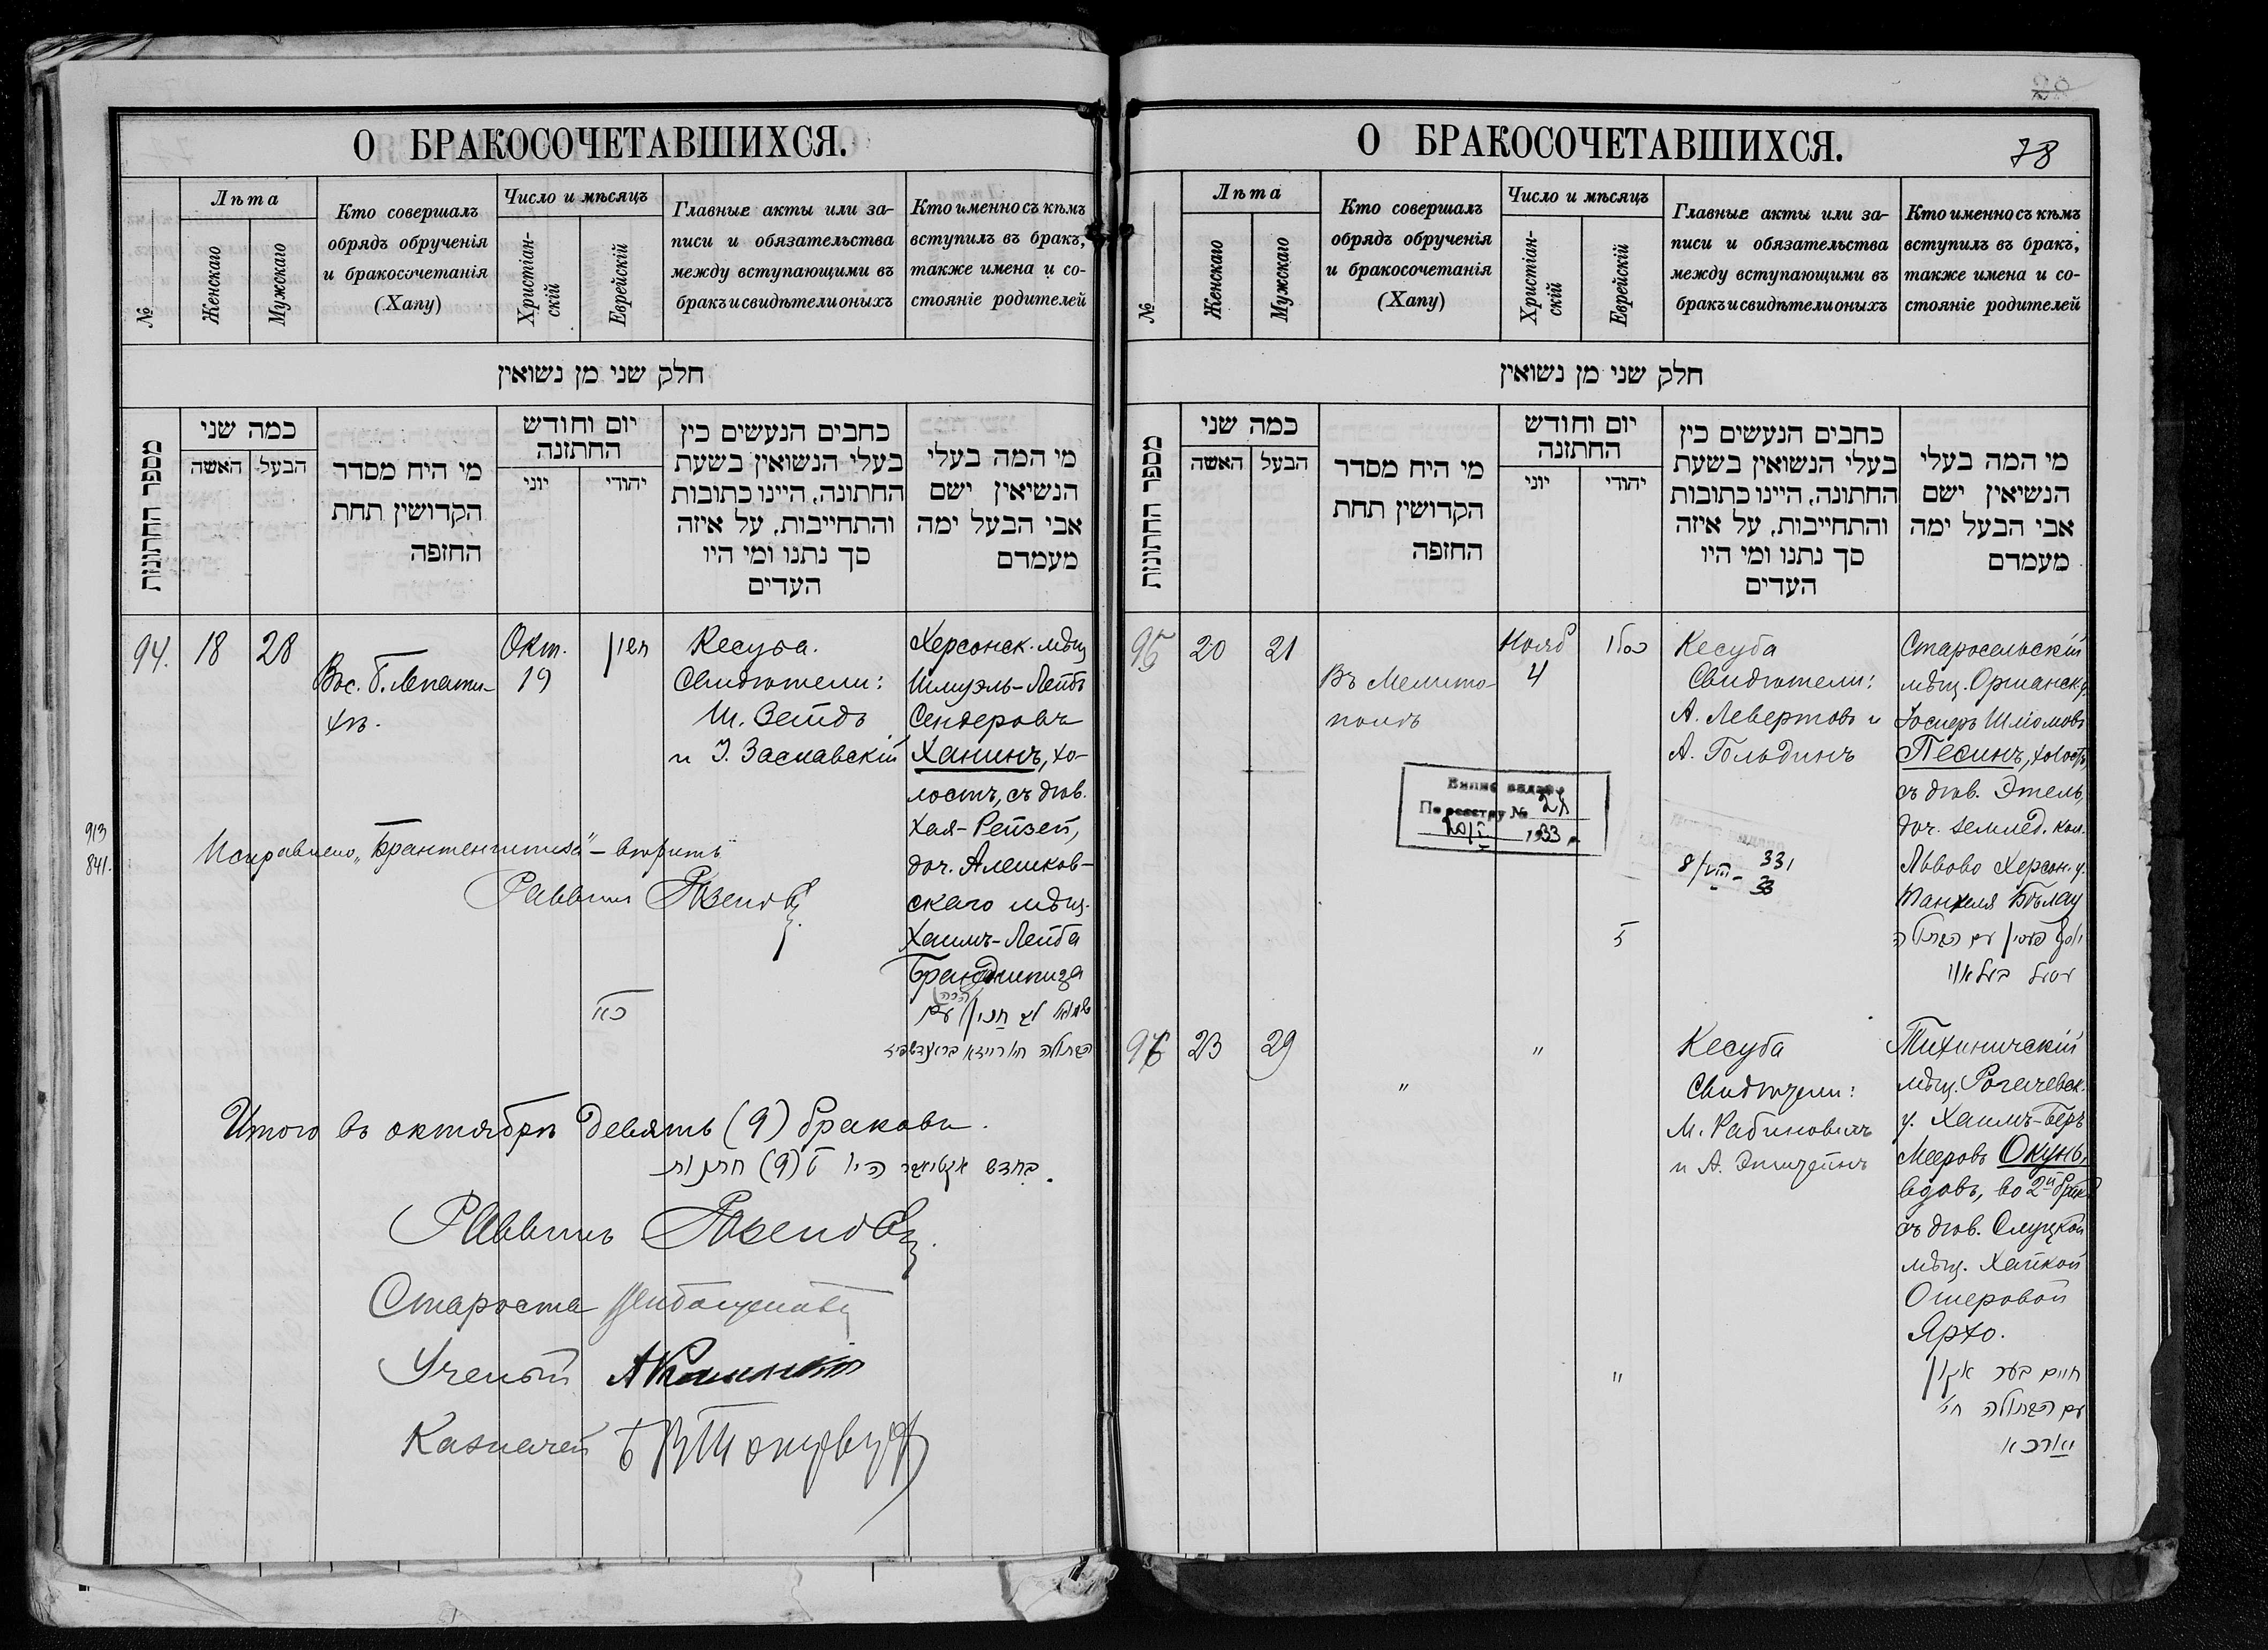 О БРАКОСОЧЕТАВШИХСЯ.
№
Лѣта
Женскаго
Мужскаго
Кто совершалъ
обрядъ обрученія
и бракосочетанія
(Хапу)
Число и мѣсяцъ
Христіан-
скій
Еврейскій
Главные акты или за-
писи и обязательства
между вступающими въ
бракъ и свидѣтели оныхъ
Кто именно съ кѣмъ
вступилъ въ бракъ,
также имена и со-
стояніе родителей
חלק שני מן נשואין
מספר החתונות
כמה שני
האשה
הבעל
מי היח מסדר
הקדושין תחת
החופה
יום וחודש
החתונה
יוני
יהודי
כחבים הנעשים כין
בעלי הנשואין בשעת
החתונה, היינו כתובות
והתחייבות, על איזה
סך נתנו ומי היו
העדים
מי המה בעלי
הנשיאין ישם
אבי הבעל ימה
מעמדם
94.
18
28
Вос.
Окт.
19
Кесуба.
Свидѣтели:
Ш. Зейдъ
и І. Заславскій
Херсонск. мѣщ
Шмуэль-Лейбъ
Сендеровъ
Ханинъ, хо-
лостъ, съ дѣв.
Хая-Рейзей,
доч. Алешков-
скаго мѣщ.
Хаимъ-Лейба
913
841.
Исправлено - вѣрить
Раввинъ
כ״א
עם
הבתולה
Итого въ октябрѣ девять (9) браковъ.
בחדש אקטיאבר היו ט (9) חתנות.
Раввинъ
Староста
Ученый
Казначей
О БРАКОСОЧЕТАВШИХСЯ.
78
№
Лѣта
Женскаго
Мужскаго
Кто совершалъ
обрядъ обрученія
и бракосочетанія
(Хапу)
Число и мѣсяцъ
Христіан-
скій
Еврейскій
Главные акты или за-
писи и обязательства
между вступающими въ
бракъ и свидѣтели оныхъ
Кто именно съ кѣмъ
вступилъ въ бракъ,
также имена и со-
стояніе родителей
חלק שני מן נשואין
מספר החתונות
כמה שני
האשה
הבעל
מי היח מסדר
הקדושין תחת
החופה
יום וחודש
החתונה
יוני
יהודי
כחבים הנעשים כין
בעלי הנשואין בשעת
החתונה, היינו כתובות
והתחייבות, על איזה
סך נתנו ומי היו
העדים
מי המה בעלי
הנשיאין ישם
אבי הבעל ימה
מעמדם
95
20
21
Въ Мелито-
полѣ
Нояб
4
כסלו
ז
Кесуба
Свидѣтели:
А. Левертовъ и
А. Гольдинъ
Старосельскій
мѣщ. Оршанск. у.
Іосифъ Шліомовъ
Песинъ, холостъ,
съ дѣв. Этель,
доч. землед. кол.
Львово Херсон. у.
יוסף פעסין עם הבתולה
По реестру № 21
1933 г.
8/VIII - 33
96
23
29
"
"
"
Кесуба
Свидѣтели:
М. Рабиновичъ
и А. Эпштейнъ
Тихиничскій
мѣщ. Рогачевск.
у. Хаимъ-Беръ
Мееровъ Окунь,
вдовъ, во 2й бракъ
съ дѣв. Слуцкой
мѣщ. Хайкой
Ошеровой
Ярхо.
חיים בער אקון
עם הבתולה חי'
יארכא